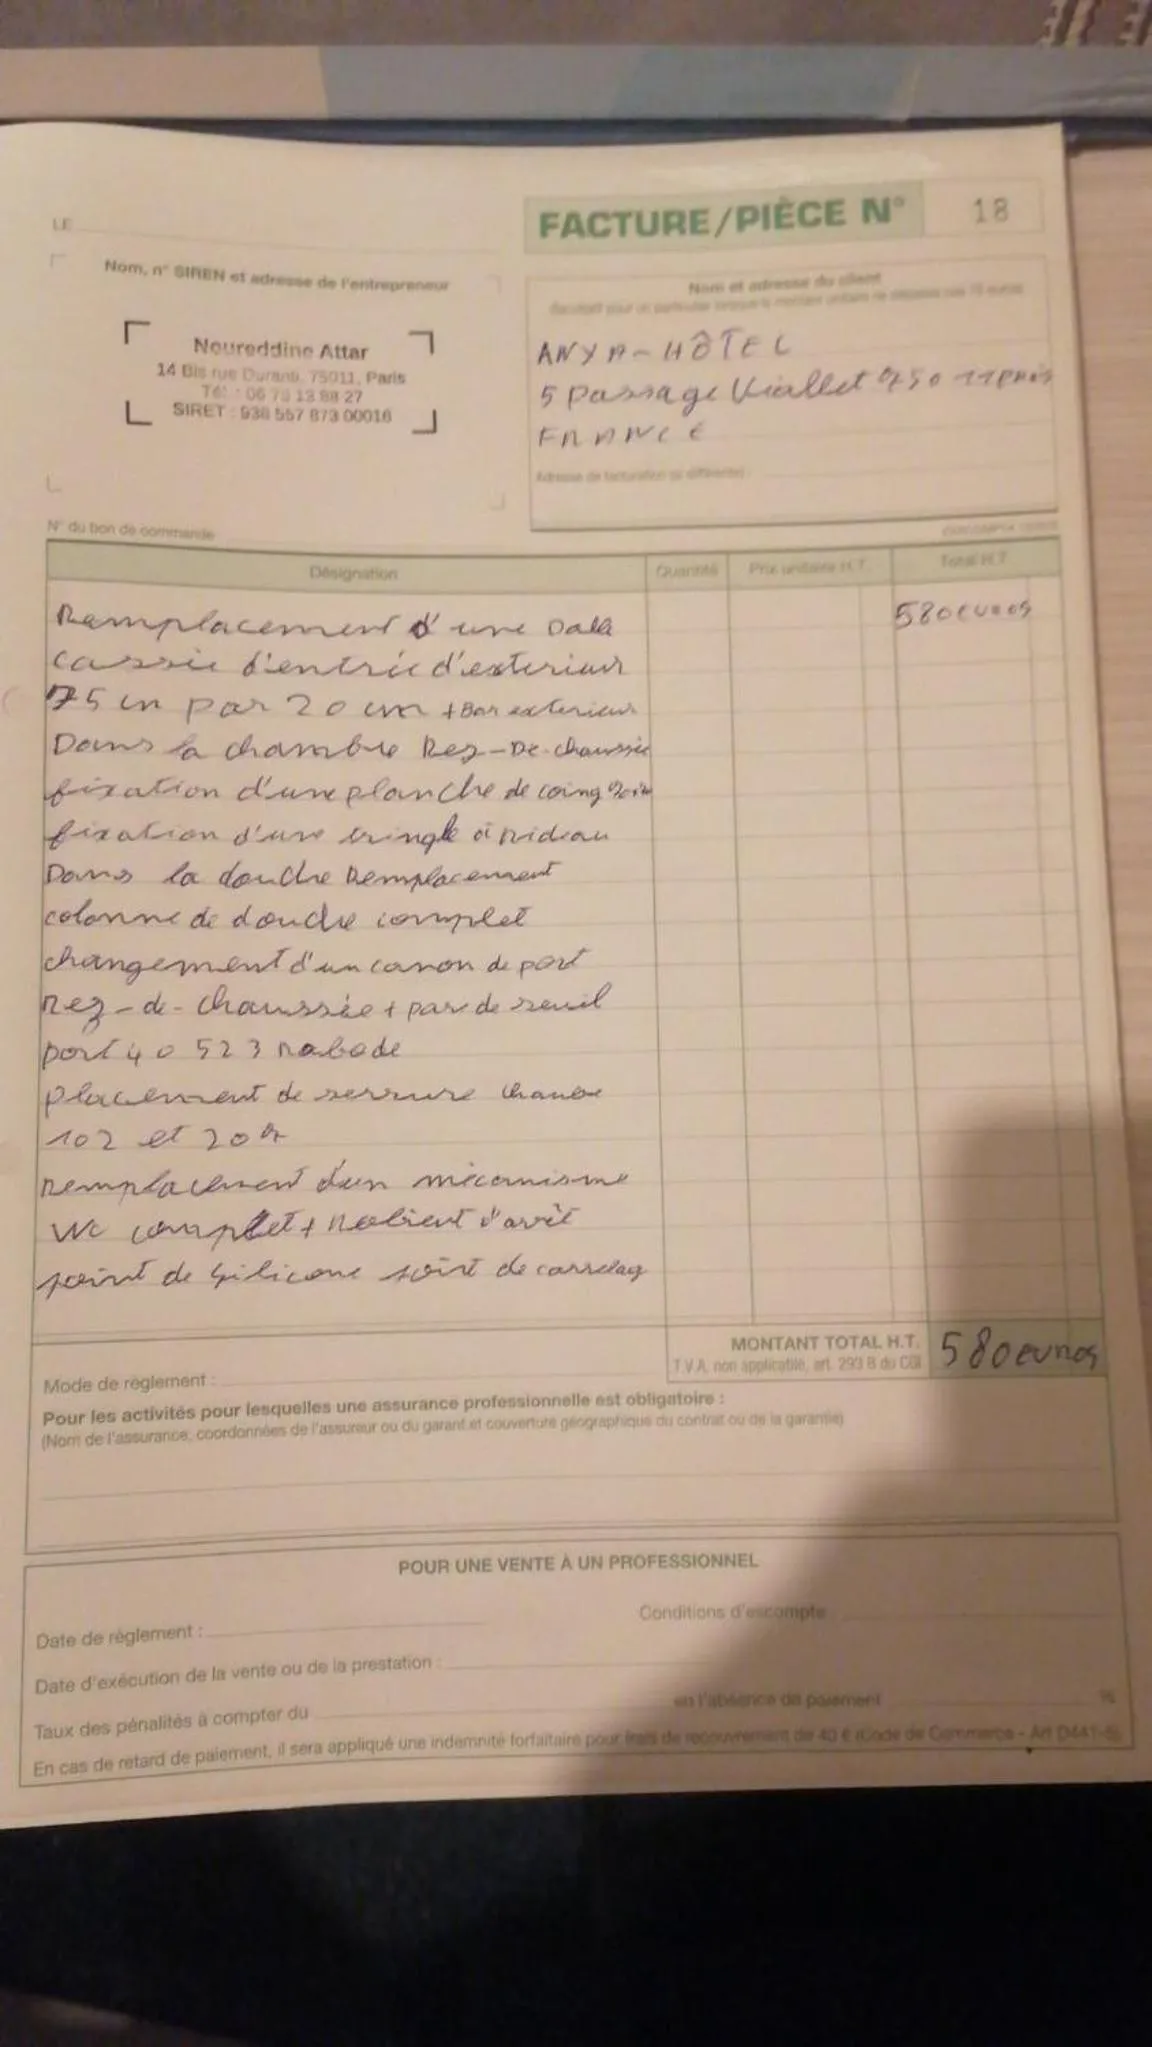 LE
FACTURE/PIÈCE N° 18
Nom, n° SIREN et adresse de l'entrepreneur
Noureddine Attar
14 Bis rue Duranti, 75011, Paris
Tél : 06 75 13 88 27
SIRET : 938 557 873 00016
Nom et adresse du client
ANYA-HÔTEL
5 passage Viallet 75011 Paris
FRANCE
Adresse de facturation (si différente) :
N° du bon de commande
Désignation Quantité Prix unitaire H.T. Total H.T.
Remplacement d'une Dall 580 euros
cassée d'entrée d'exterieur
75 cm par 20 cm + Bar exterieur
Dans la chambre Rez-De-chaussée
fixation d'une planche de coing
fixation d'une tringle à rideau
Dans la douche Remplacement
colonne de douche complet
changement d'un canon de port
Rez-de-chaussée + par de seuil
port 40 523 Rabode
placement de serrure
102 et
remplacement d'un mécanisme
WC complet + Robient d'arrêt
joint de silicone joint de carrelag
MONTANT TOTAL H.T. 580 euros
T.V.A. non applicable, art. 293 B du CGI
Mode de règlement :
Pour les activités pour lesquelles une assurance professionnelle est obligatoire :
(Nom de l'assurance, coordonnées de l'assureur ou du garant et couverture géographique du contrat ou de la garantie)
POUR UNE VENTE À UN PROFESSIONNEL
Date de règlement : Conditions d'escompte
Date d'exécution de la vente ou de la prestation :
Taux des pénalités à compter du en l'absence de paiement %
En cas de retard de paiement, il sera appliqué une indemnité forfaitaire pour frais de recouvrement de 40 € (Code de Commerce - Art D441-5)